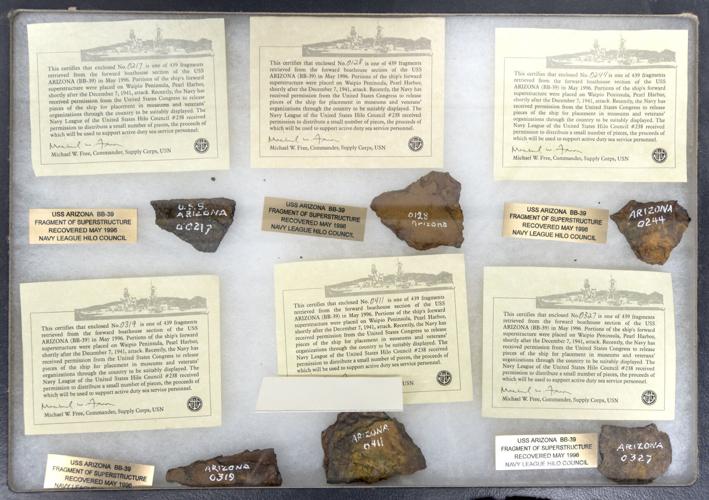 This certifies that enclosed No. 0217 is one of 439 fragments
retrieved from the forward boathouse section of the USS
ARIZONA (BB-39) in May 1996. Portions of the ship's forward
superstructure were placed on Waipio Peninsula, Pearl Harbor,
shortly after the December 7, 1941, attack. Recently, the Navy has
received permission from the United States Congress to release
pieces of the ship for placement in museums and veterans'
organizations through the country to be suitably displayed. The
Navy League of the United States Hilo Council #238 received
permission to distribute a small number of pieces, the proceeds of
which will be used to support active duty sea service personnel.
Michael W. Free, Commander, Supply Corps, USN
USS ARIZONA BB-39
FRAGMENT OF SUPERSTRUCTURE
RECOVERED MAY 1996
NAVY LEAGUE HILO COUNCIL
U.S.S.
ARIZONA
00217
This certifies that enclosed No. 0128 is one of 439 fragments
retrieved from the forward boathouse section of the USS
ARIZONA (BB-39) in May 1996. Portions of the ship's forward
superstructure were placed on Waipio Peninsula, Pearl Harbor,
shortly after the December 7, 1941, attack. Recently, the Navy has
received permission from the United States Congress to release
pieces of the ship for placement in museums and veterans'
organizations through the country to be suitably displayed. The
Navy League of the United States Hilo Council #238 received
permission to distribute a small number of pieces, the proceeds of
which will be used to support active duty sea service personnel.
Michael W. Free, Commander, Supply Corps, USN
USS ARIZONA BB-39
FRAGMENT OF SUPERSTRUCTURE
RECOVERED MAY 1996
NAVY LEAGUE HILO COUNCIL
0128
Arizona
This certifies that enclosed No. 0244 is one of 439 fragments
retrieved from the forward boathouse section of the USS
ARIZONA (BB-39) in May 1996. Portions of the ship's forward
superstructure were placed on Waipio Peninsula, Pearl Harbor,
shortly after the December 7, 1941, attack. Recently, the Navy has
received permission from the United States Congress to release
pieces of the ship for placement in museums and veterans'
organizations through the country to be suitably displayed. The
Navy League of the United States Hilo Council #238 received
permission to distribute a small number of pieces, the proceeds of
which will be used to support active duty sea service personnel.
Michael W. Free, Commander, Supply Corps, USN
USS ARIZONA BB-39
FRAGMENT OF SUPERSTRUCTURE
RECOVERED MAY 1996
NAVY LEAGUE HILO COUNCIL
ARIZONA
0244
This certifies that enclosed No. 0319 is one of 439 fragments
retrieved from the forward boathouse section of the USS
ARIZONA (BB-39) in May 1996. Portions of the ship's forward
superstructure were placed on Waipio Peninsula, Pearl Harbor,
shortly after the December 7, 1941, attack. Recently, the Navy has
received permission from the United States Congress to release
pieces of the ship for placement in museums and veterans'
organizations through the country to be suitably displayed. The
Navy League of the United States Hilo Council #238 received
permission to distribute a small number of pieces, the proceeds of
which will be used to support active duty sea service personnel.
Michael W. Free, Commander, Supply Corps, USN
USS ARIZONA BB-39
FRAGMENT OF SUPERSTRUCTURE
RECOVERED MAY 1996
ARIZONA
0319
This certifies that enclosed No. 0411 is one of 439 fragments
retrieved from the forward boathouse section of the USS
ARIZONA (BB-39) in May 1996. Portions of the ship's forward
superstructure were placed on Waipio Peninsula, Pearl Harbor,
shortly after the December 7, 1941, attack. Recently, the Navy has
received permission from the United States Congress to release
pieces of the ship for placement in museums and veterans'
organizations through the country to be suitably displayed. The
Navy League of the United States Hilo Council #238 received
permission to distribute a small number of pieces, the proceeds of
which will be used to support active duty sea service personnel.
ARIZONA
0411
This certifies that enclosed No. 0327 is one of 439 fragments
retrieved from the forward boathouse section of the USS
ARIZONA (BB-39) in May 1996. Portions of the ship's forward
superstructure were placed on Waipio Peninsula, Pearl Harbor,
shortly after the December 7, 1941, attack. Recently, the Navy has
received permission from the United States Congress to release
pieces of the ship for placement in museums and veterans'
organizations through the country to be suitably displayed. The
Navy League of the United States Hilo Council #238 received
permission to distribute a small number of pieces, the proceeds of
which will be used to support active duty sea service personnel.
Michael W. Free, Commander, Supply Corps, USN
USS ARIZONA BB-39
FRAGMENT OF SUPERSTRUCTURE
RECOVERED MAY 1996
NAVY LEAGUE HILO COUNCIL
ARIZONA
0327